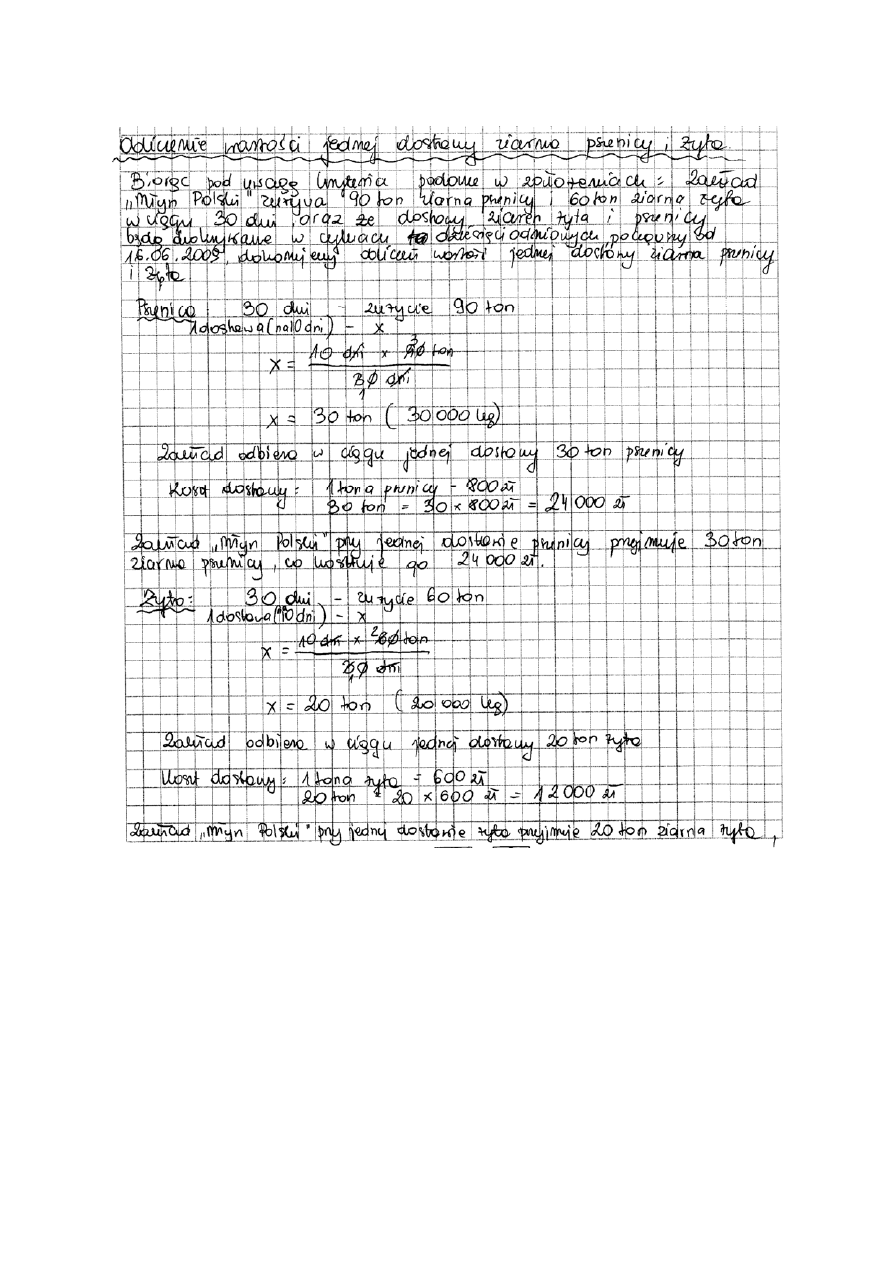 Obliczenie wartości jednej dostawy ziarna pszenicy i żyta
Biorąc pod uwagę kryteria podane w założeniach: Zakład
„Młyn Polski" zużywa 90 ton ziarna pszenicy i 60 ton ziarna żyta
w ciągu 30 dni oraz że dostawy ziaren żyta i pszenicy
będą dokonywane w cyklach dziesięciodniowych począwszy od
16.06.2009, dokonujemy obliczeń wartości jednej dostawy ziarna pszenicy
i żyta
Pszenica 30 dni - zużycie 90 ton
1 dostawa (na 10 dni) - x
x = 10 dni x 90 ton 3
30 dni
1
x = 30 ton (30 000 kg)
Zakład odbiera w ciągu jednej dostawy 30 ton pszenicy
Koszt dostawy: 1 tona pszenicy - 800 zł
30 ton = 30 x 800 zł = 24 000 zł
Zakład „Młyn Polski" przy jednej dostawie pszenicy przyjmuje 30 ton
ziarna pszenicy, co kosztuje go 24 000 zł.
Żyto: 30 dni - zużycie 60 ton
1 dostawa (10 dni) - x
x = 10 dni x 2 60 ton
30 dni
1
x = 20 ton (20 000 kg)
Zakład odbiera w ciągu jednej dostawy 20 ton żyta
Koszt dostawy: 1 tona żyta = 600 zł
20 ton = 20 x 600 zł = 12 000 zł
Zakład „Młyn Polski" przy jednej dostawie żyta przyjmuje 20 ton ziarna żyta,